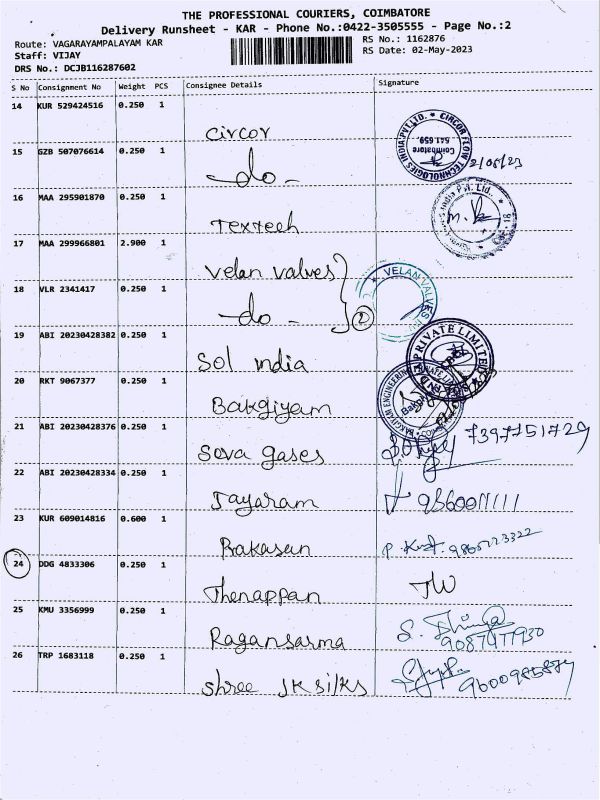 THE PROFESSIONAL COURIERS, COIMBATORE
Delivery Runsheet - KAR - Phone No.:0422-3505555 - Page No.:2
Route: VAGARAYAMPALAYAM KAR RS No.: 1162876
Staff: VIJAY RS Date: 02-May-2023
DRS No.: DCJB116287602
S No Consignment No Weight PCS Consignee Details Signature
14 KUR 529424516 0.250 1
Circor
CIRCOR FLOW TECHNOLOGIES INDIA PVT. LTD.
Coimbatore
641 659
15 GZB 507076614 0.250 1
-do- 2/05/23
16 MAA 295901870 0.250 1
Textech
17 MAA 299966801 2.900 1
Velan Valves
VELAN VALVES
18 VLR 2341417 0.250 1
-do- 2
19 ABI 20230428382 0.250 1
Sol india
PRIVATE LIMITED
20 RKT 9067377 0.250 1
Bakgiyam
21 ABI 20230428376 0.250 1
Sova gases 7397751729
22 ABI 20230428334 0.250 1
Jayaram
23 KUR 609014816 0.600 1
Prakasan
24 DDG 4833306 0.250 1
Thenappan
25 KMU 3356999 0.250 1
Ragansarma
26 TRP 1683118 0.250 1
Shree JK Silks